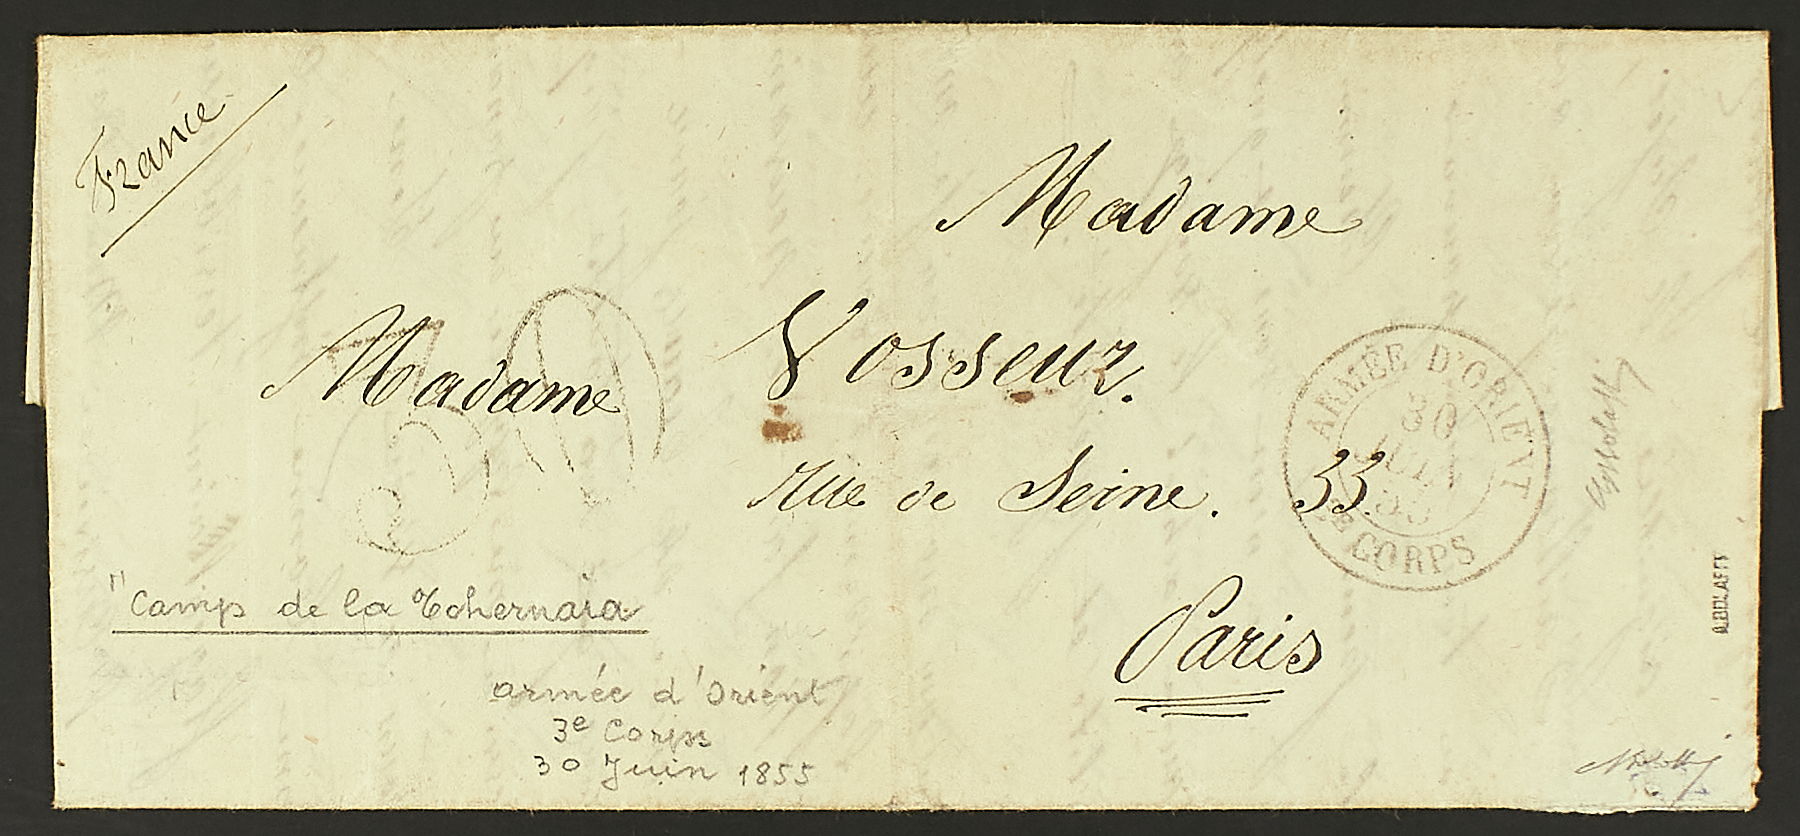 France
Madame
Madame Vosseur.
rue de Seine. 33.
Paris
30
ARMÉE D'ORIENT
30
JUIN
55
3E CORPS
"Camp de la Tchernaïa
armée d'Orient
3e Corps
30 Juin 1855